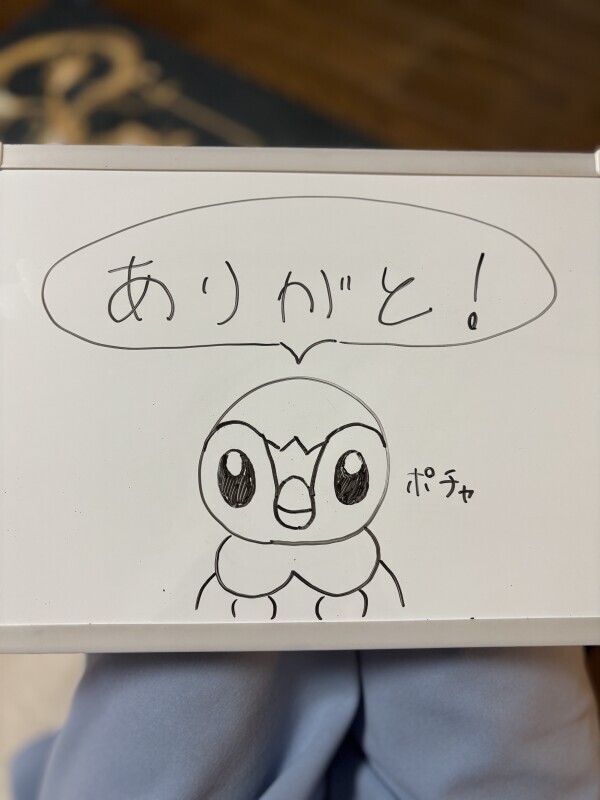 ありがと!
ポチャ